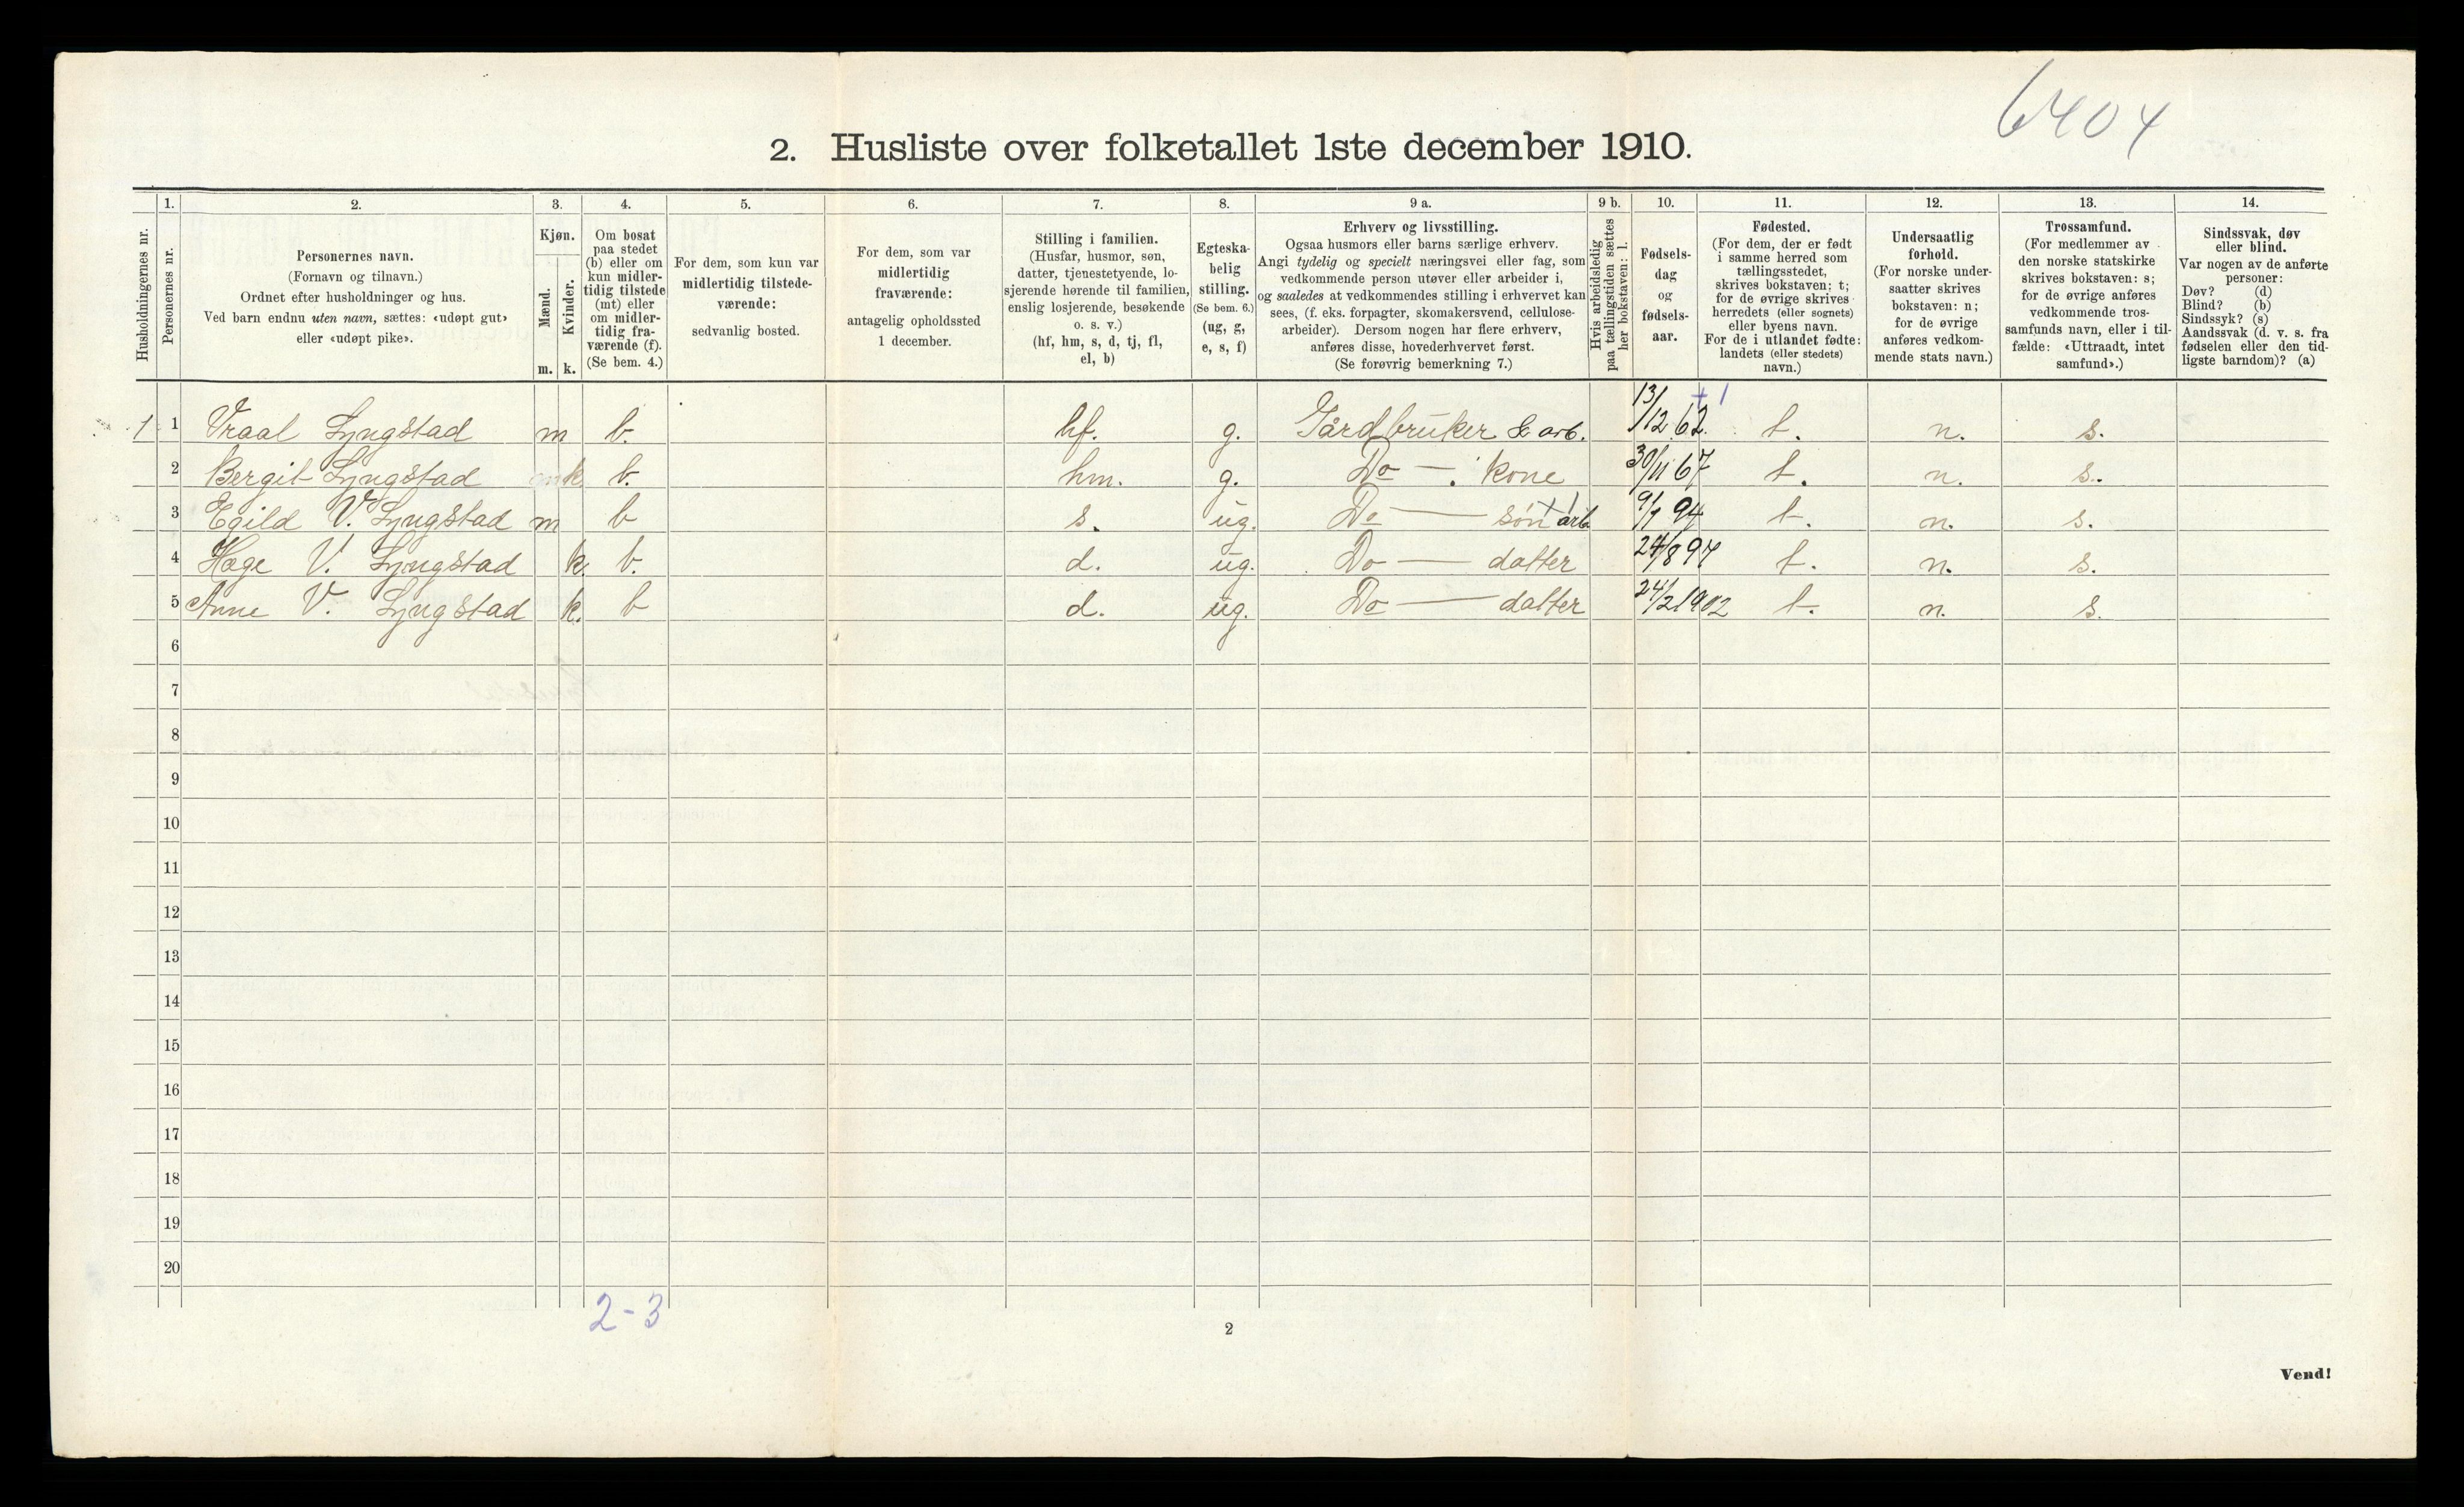 6404
2. Husliste over folketallet 1ste december 1910.
Husholdningernes nr.
1.
Personernes nr.
2.
Personernes navn.
(Fornavn og tilnavn.)
Ordnet efter husholdninger og hus.
Ved barn endnu uten navn, sættes: «udøpt gut»
eller «udøpt pike».
3.
Kjøn.
Mænd.
Kvinder.
m. k.
4.
Om bosat
paa stedet
(b) eller om
kun midler-
tidig tilstede
(mt) eller
om midler-
tidig fra-
værende (f).
(Se bem. 4.)
5.
For dem, som kun var
midlertidig tilstede-
værende:
sedvanlig bosted.
6.
For dem, som var
midlertidig
fraværende:
antagelig opholdssted
1 december.
7.
Stilling i familien.
(Husfar, husmor, søn,
datter, tjenestetyende, lo-
sjerende hørende til familien,
enslig losjerende, besøkende
o. s. v.)
(hf, hm, s, d, tj, fl,
el, b)
8.
Egteska-
belig
stilling.
(Se bem. 6.)
(ug, g,
e, s, f)
9 a.
Erhverv og livsstilling.
Ogsaa husmors eller barns særlige erhverv.
Angi tydelig og specielt næringsvei eller fag, som
vedkommende person utøver eller arbeider i,
og saaledes at vedkommendes stilling i erhvervet kan
sees, (f. eks. forpagter, skomakersvend, cellulose-
arbeider). Dersom nogen har flere erhverv,
anføres disse, hovederhvervet først.
(Se forøvrig bemerkning 7.)
9 b.
Hvis arbeidsledig
paa tællingstiden sættes
her bokstaven: l.
10.
Fødsels-
dag
og
fødsels-
aar.
11.
Fødested.
(For dem, der er født
i samme herred som
tællingsstedet,
skrives bokstaven: t;
for de øvrige skrives
herredets (eller sognets)
eller byens navn.
For de i utlandet fødte:
landets (eller stedets)
navn.)
12.
Undersaatlig
forhold.
(For norske under-
saatter skrives
bokstaven: n;
for de øvrige
anføres vedkom-
mende stats navn.)
13.
Trossamfund.
(For medlemmer av
den norske statskirke
skrives bokstaven: s;
for de øvrige anføres
vedkommende tros-
samfunds navn, eller i til-
fælde: «Uttraadt, intet
samfund».)
14.
Sindssvak, døv
eller blind.
Var nogen av de anførte
personer:
Døv? (d)
Blind? (b)
Sindssyk? (s)
Aandssvak (d. v. s. fra
fødselen eller den tid-
ligste barndom)? (a)
+ 1
1 1 Vraal Lyngstad m b. hf. g. Gårdbruker & arb. 13/12 62. t. n. s.
2 Bergit Lyngstad k b. hm. g. Do — . kone 30/11 67 t. n. s.
3 Egild V. Lyngstad m b s. ug. Do — søn arb. 9/1 94 t. n. s.
4 Hæge V. Lyngstad k. b. d. ug. Do — datter 24/8 97 t. n. s.
5 Anne V. Lyngstad k. b d. ug. Do — datter 24/2 1902 t. n. s.
6
7
8
9
10
11
12
13
14
15
16
17
18
19
20
2-3
2
Vend!